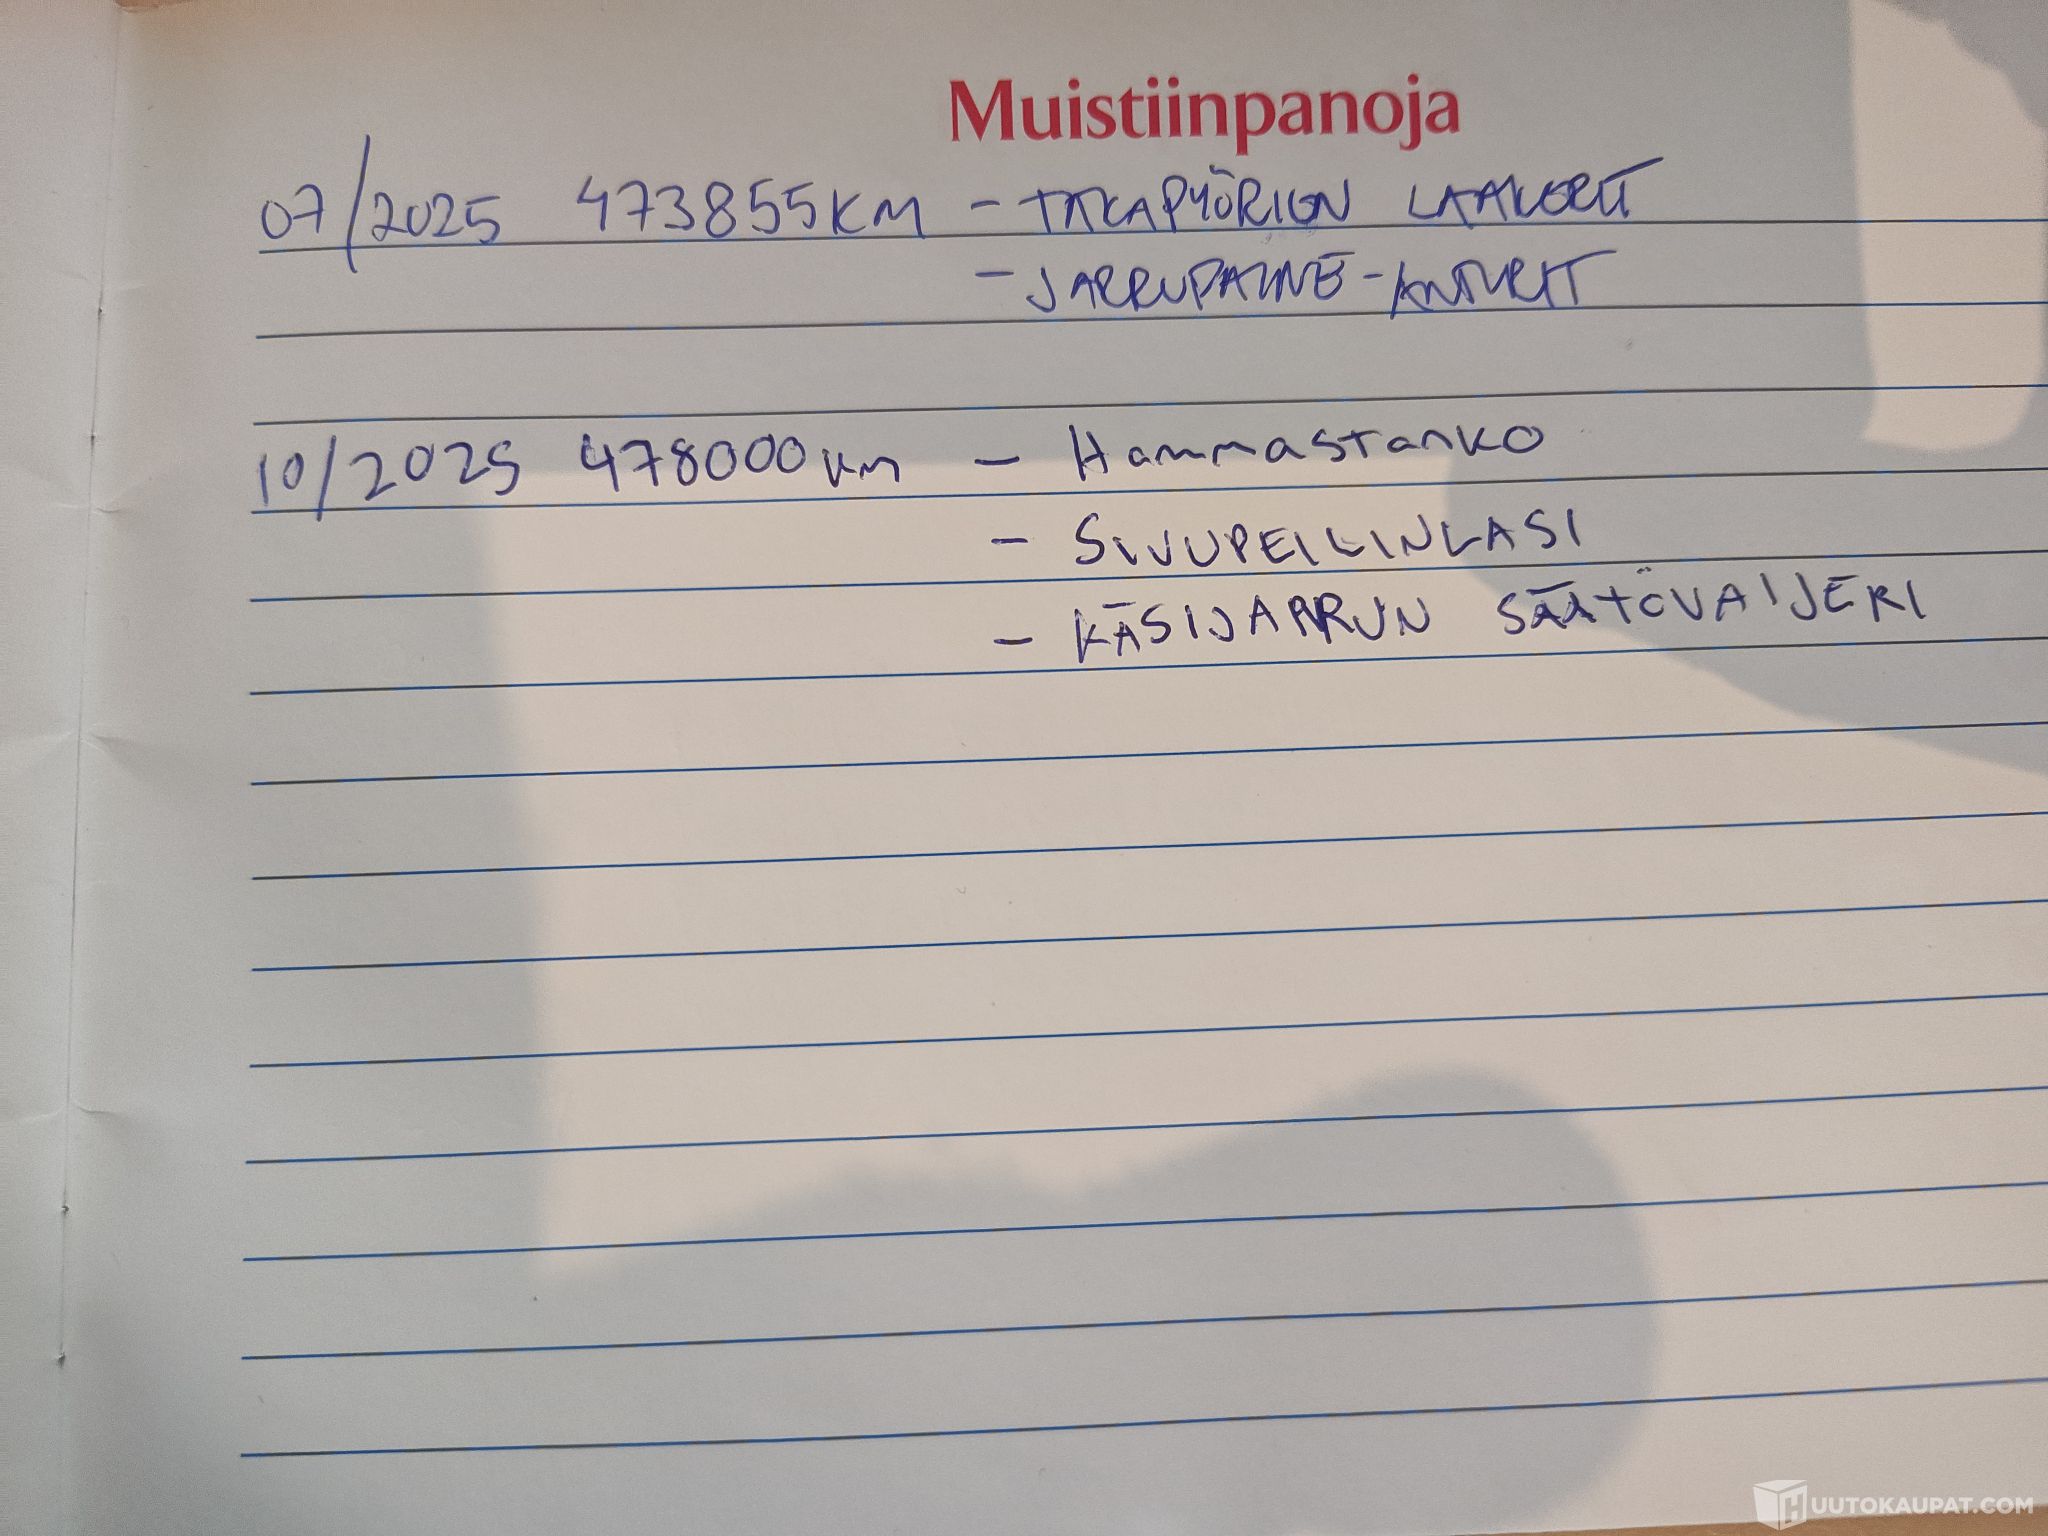 Muistiinpanoja
07/2025 473855KM - TAKAPYÖRIEN LAAKERIT
- JARRUPAINE-ANTURIT
10/2025 478000km - Hammastanko
- SIVUPEILINLASI
- KÄSIJARRUN SÄÄTÖVAIJERI
HUUTOKAUPAT.COM